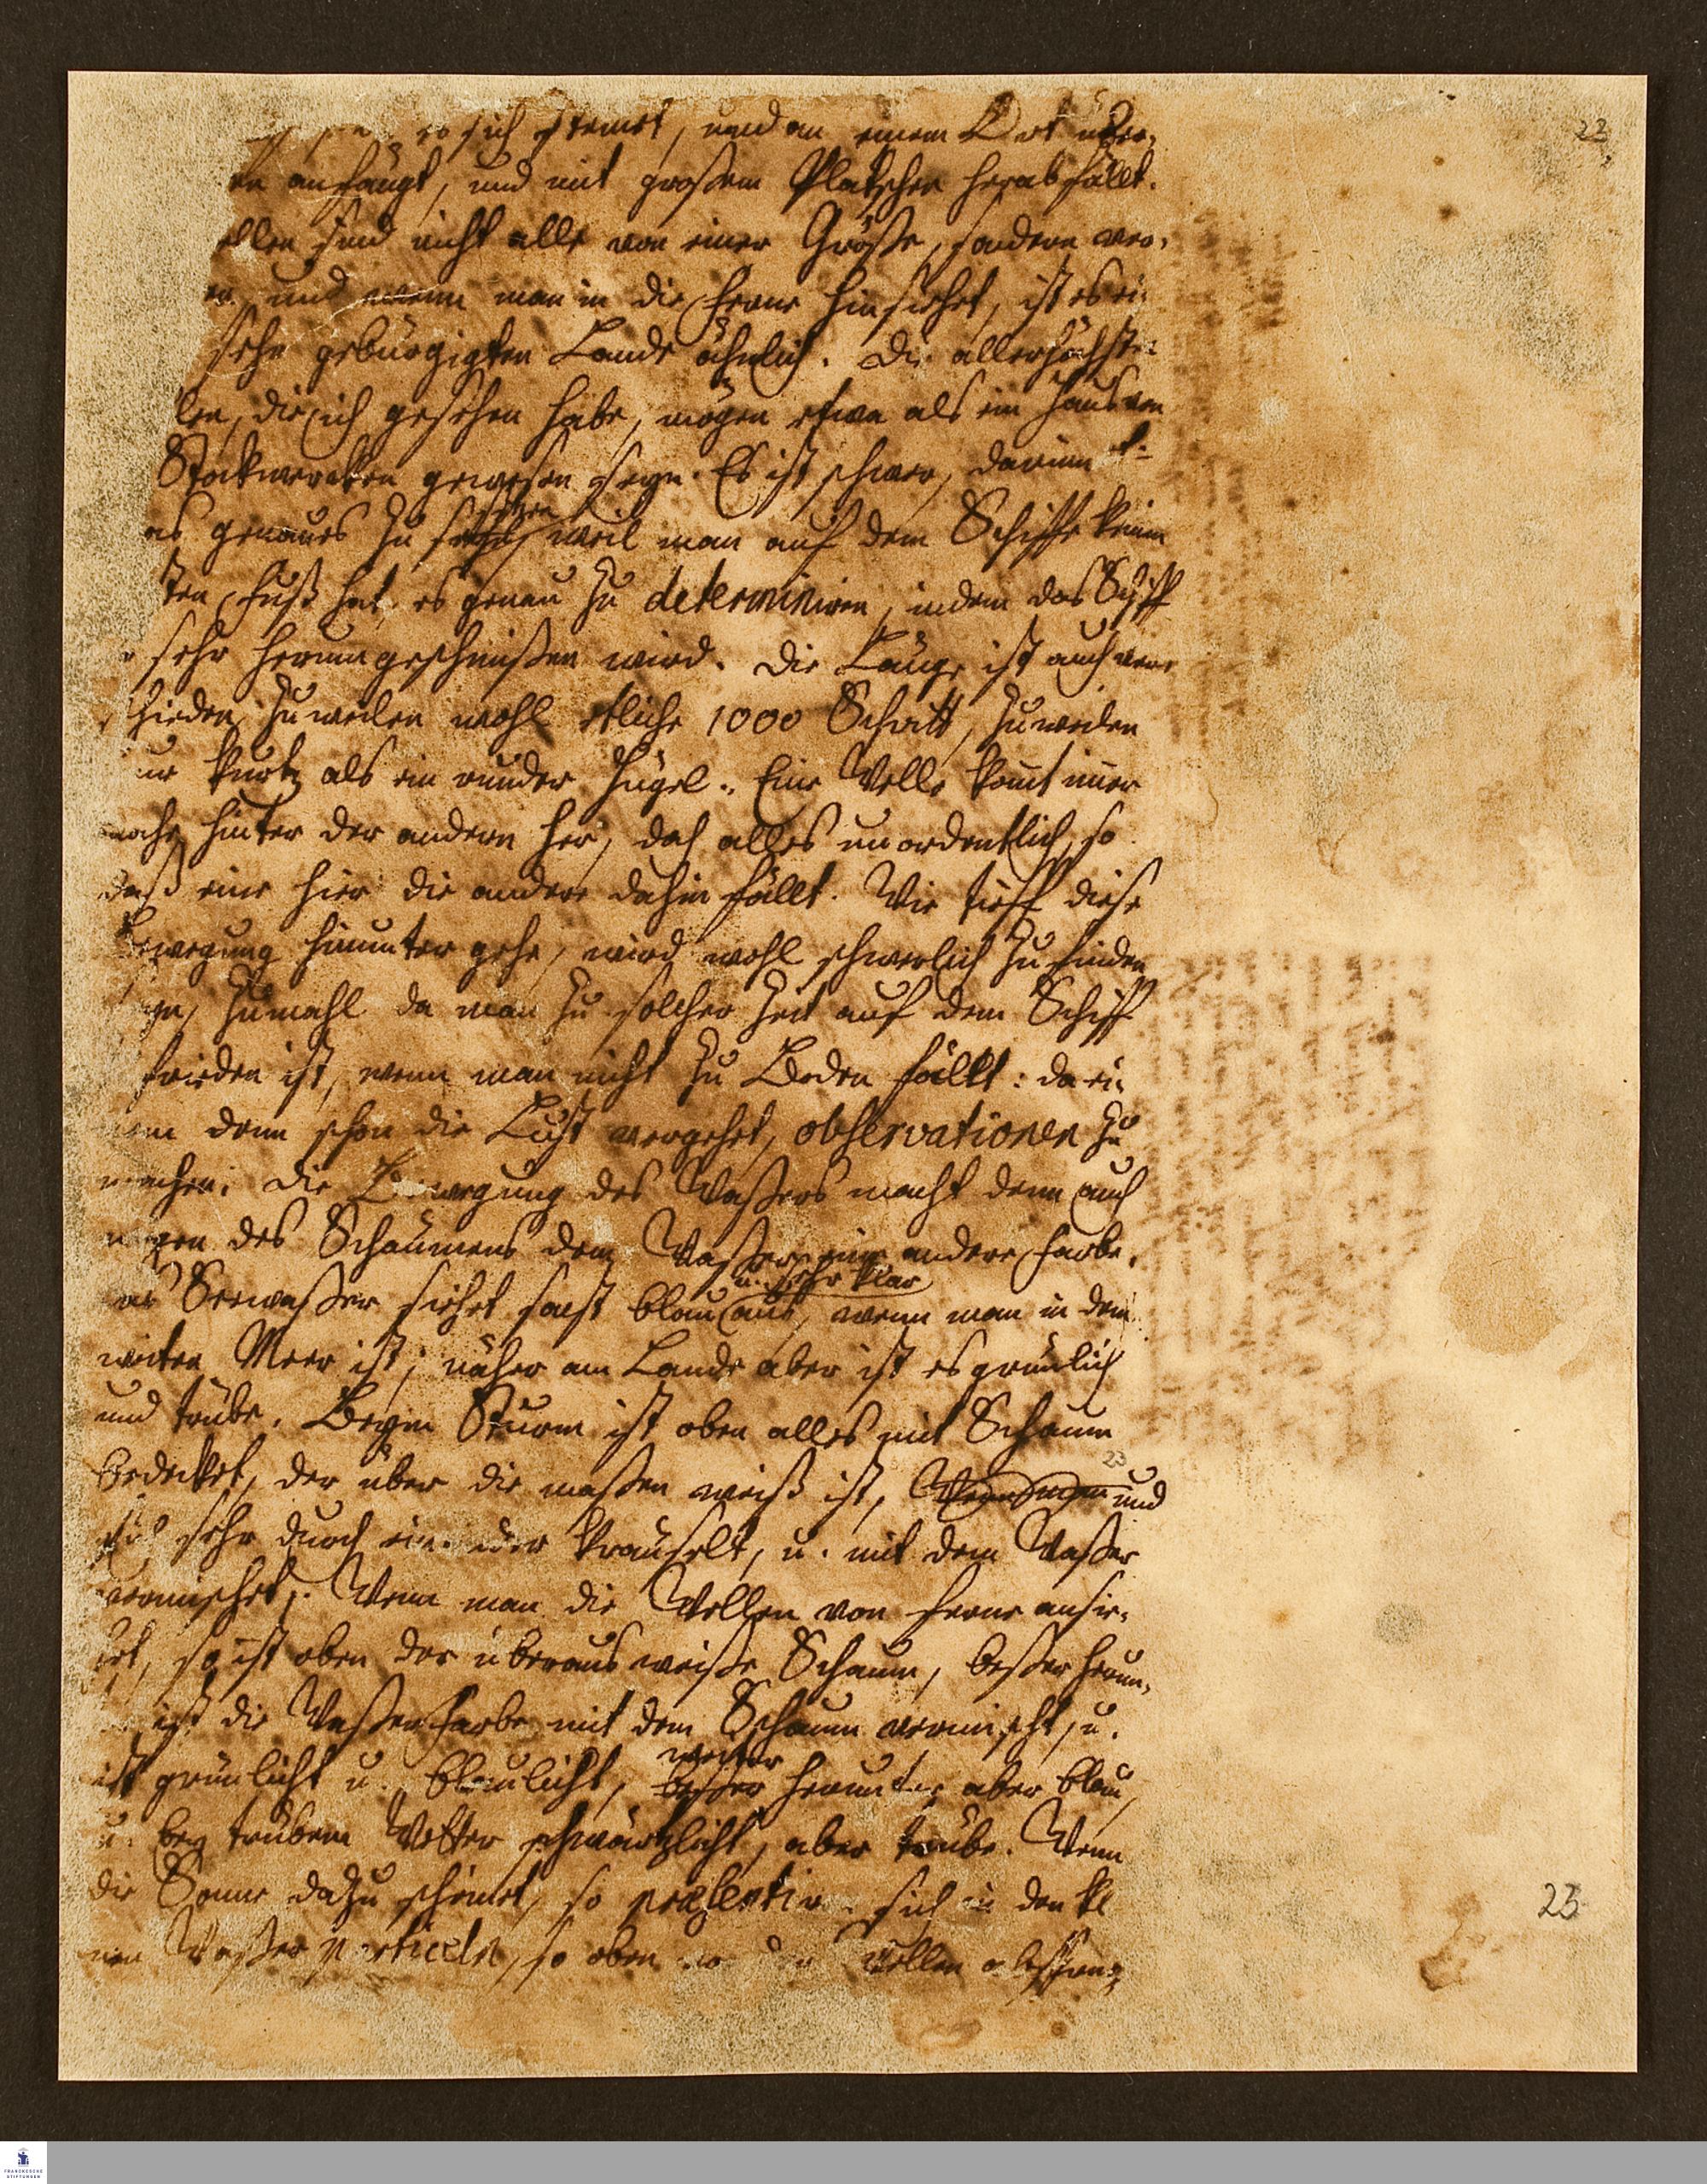 22
sich stemet, und an einem Ort über-
en anfängt, und mit großem Platschen herabfällt.
ellen sind nicht alle von einer Größe, sondern ver-
und wenn man in die Ferne hinsiehet, ist es ei-
sehr gebürgigten Lande ähnlich. Die allerhöchste
len, die ich gesehen habe, mögen etwa als ein Haus von
Stockwercken gewesen seyn. Es ist schwer, darinn
as genaues zu setzen weil man auf dem Schiffe keinen
ten Fuß hat, es genau zu determiniren, indem das Schiff
sehr herumgeschmißen wird. Die Länge ist auch ver-
hieden, zuweilen wohl etliche 1000 Schritt, zuweilen
ur kurtz als ein runder Hügel. Eine Welle komt imer
nahe hinter der andern her, doch alles unordentlich, so
daß eine hier die andere dahin fällt. Wie tieff diese
Bewegung hinunter gehe, wird wohl schwerlich zu finden
yn, zumahl da man zu solcher Zeit auf dem Schiff
frieden ist, wenn man nicht zu Boden fällt: da ei-
nem denn schon die Lust vergehet, observationen zu
machen. Die Bewegung des Waßers macht denn auch
wegen des Schäumens dem Waßer eine andere Farbe.
u. sehr klar
as Seewaßer siehet sonst blau aus, wenn man in dem
weiten Meer ist; näher am Lande aber ist es grünlich
und trübe. Beym Sturm ist oben alles mit Schaum
bedecket, der über die maßen weiß ist, und
sich sehr durch einander kräuselt, u. mit dem Waßer
vermischet. Wenn man die Wellen von Ferne ansie-
het, so ist oben der überaus weiße Schaum, beßer herun-
ist die Waßerfarbe mit dem Schaum vermischt, u.
weiter
ist grünlicht u. blaulicht, beßer herunter aber blau,
u. bey trübem Wetter schwärtzlicht, aber trübe. Wenn
die Sonne dazu scheinet, so sich in den kl
nen Waßer particeln, so oben wellen
23